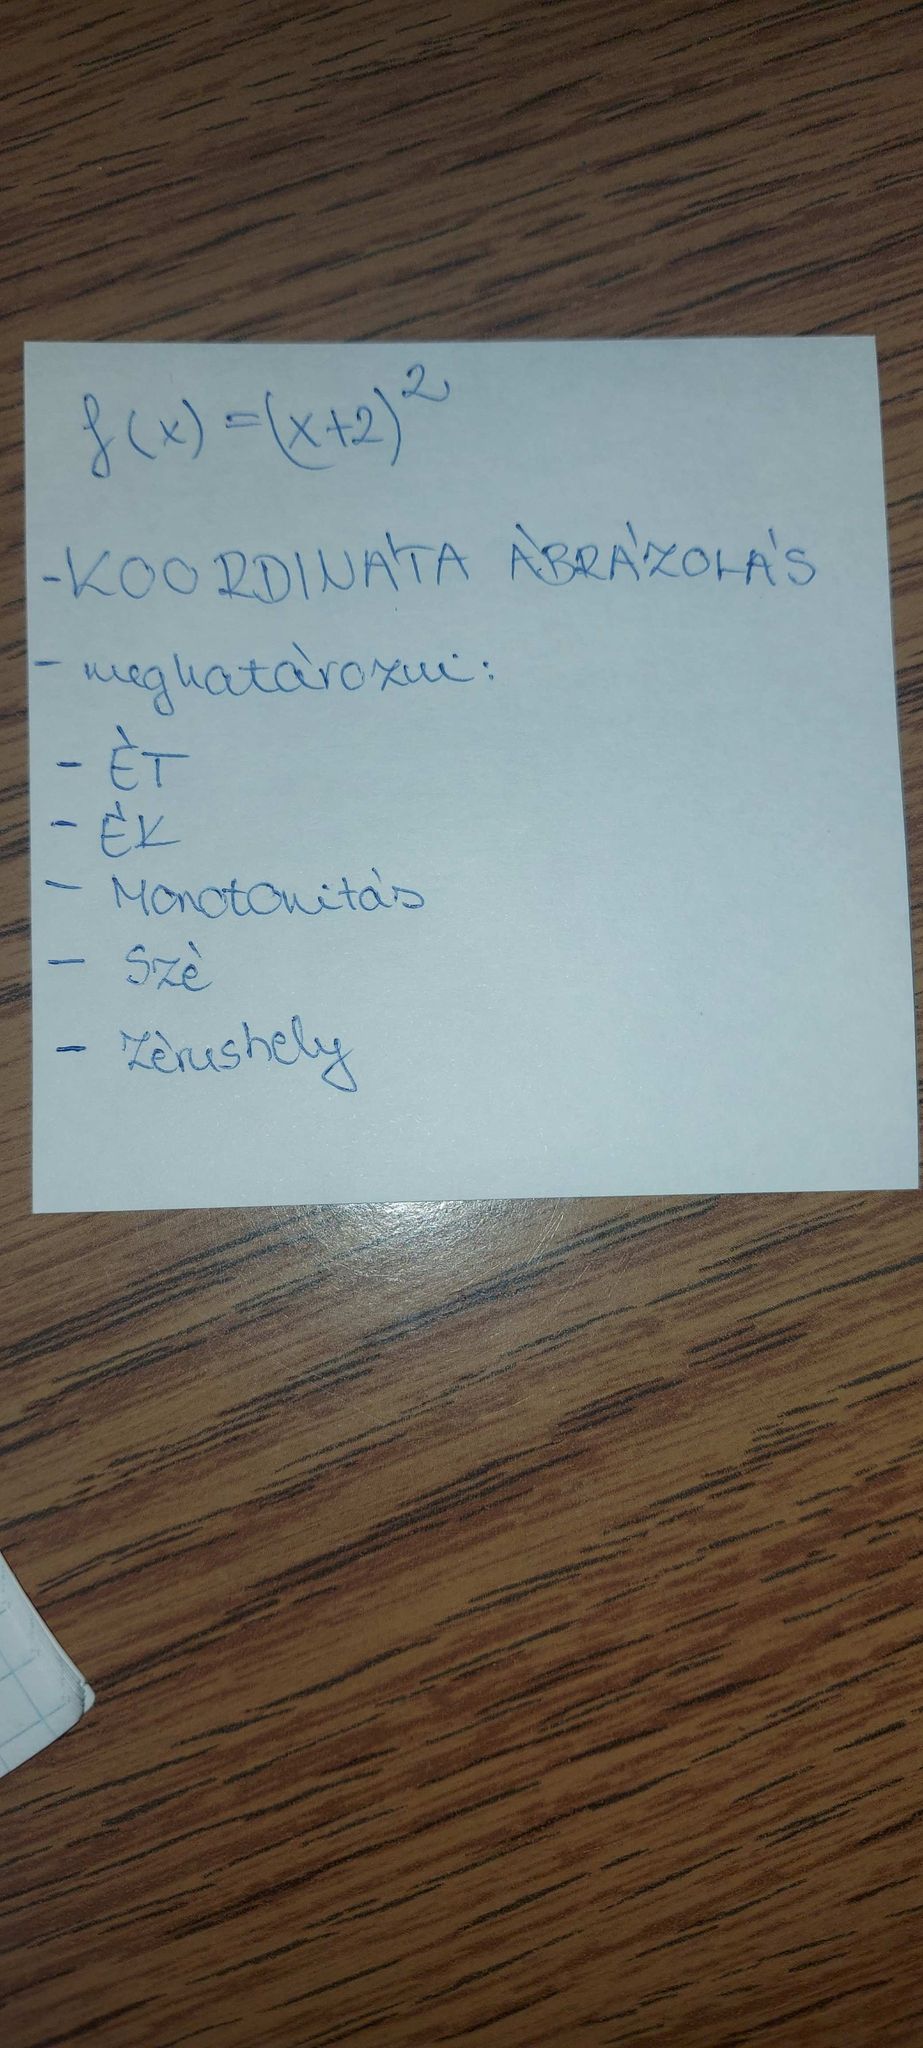 f(x) = (x+2)²
-KOORDINÁTA ÁBRÁZOLÁS
- meghatározni:
- ÉT
- ÉK
- Monotonitás
- Szé
- Zérushely